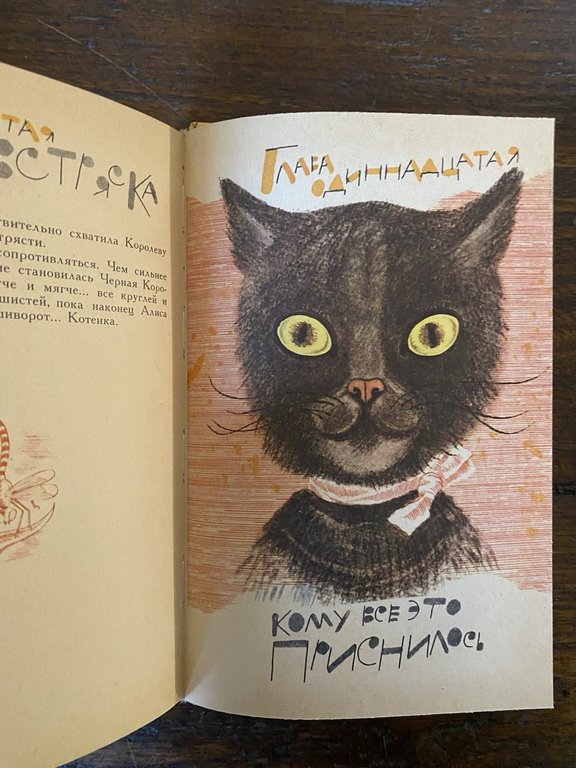 тая
встряска
ствительно схватила Королеву
трясти.
сопротивляться. Чем сильнее
не становилась Черная Коро-
че и мягче... все круглей и
шистей, пока наконец Алиса
шиворот... Котенка.
Глава
одиннадцатая
кому все это
приснилось